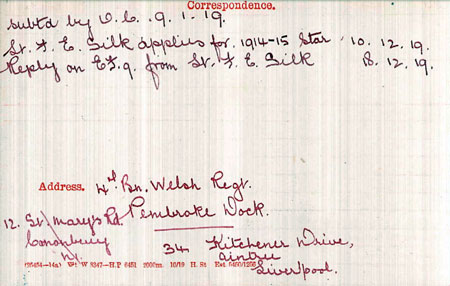 Correspondence.
subtd by O.C. 9. 1. 19.
Lt. F. E. Silk applies for 1914-15 Star 10. 12. 19.
Reply on EF.9. from Lt. F. E. Silk 13. 12. 19.
Address. 4th Bn. Welsh Regt.
12. St/ Mary's Rd. Pembroke Dock.
Canonbury
N1.
34 Kitchener Drive,
Aintree
Liverpool.
(25454—14a) Wt. W 8347—H.P 6451 2000m. 10/19 H. St